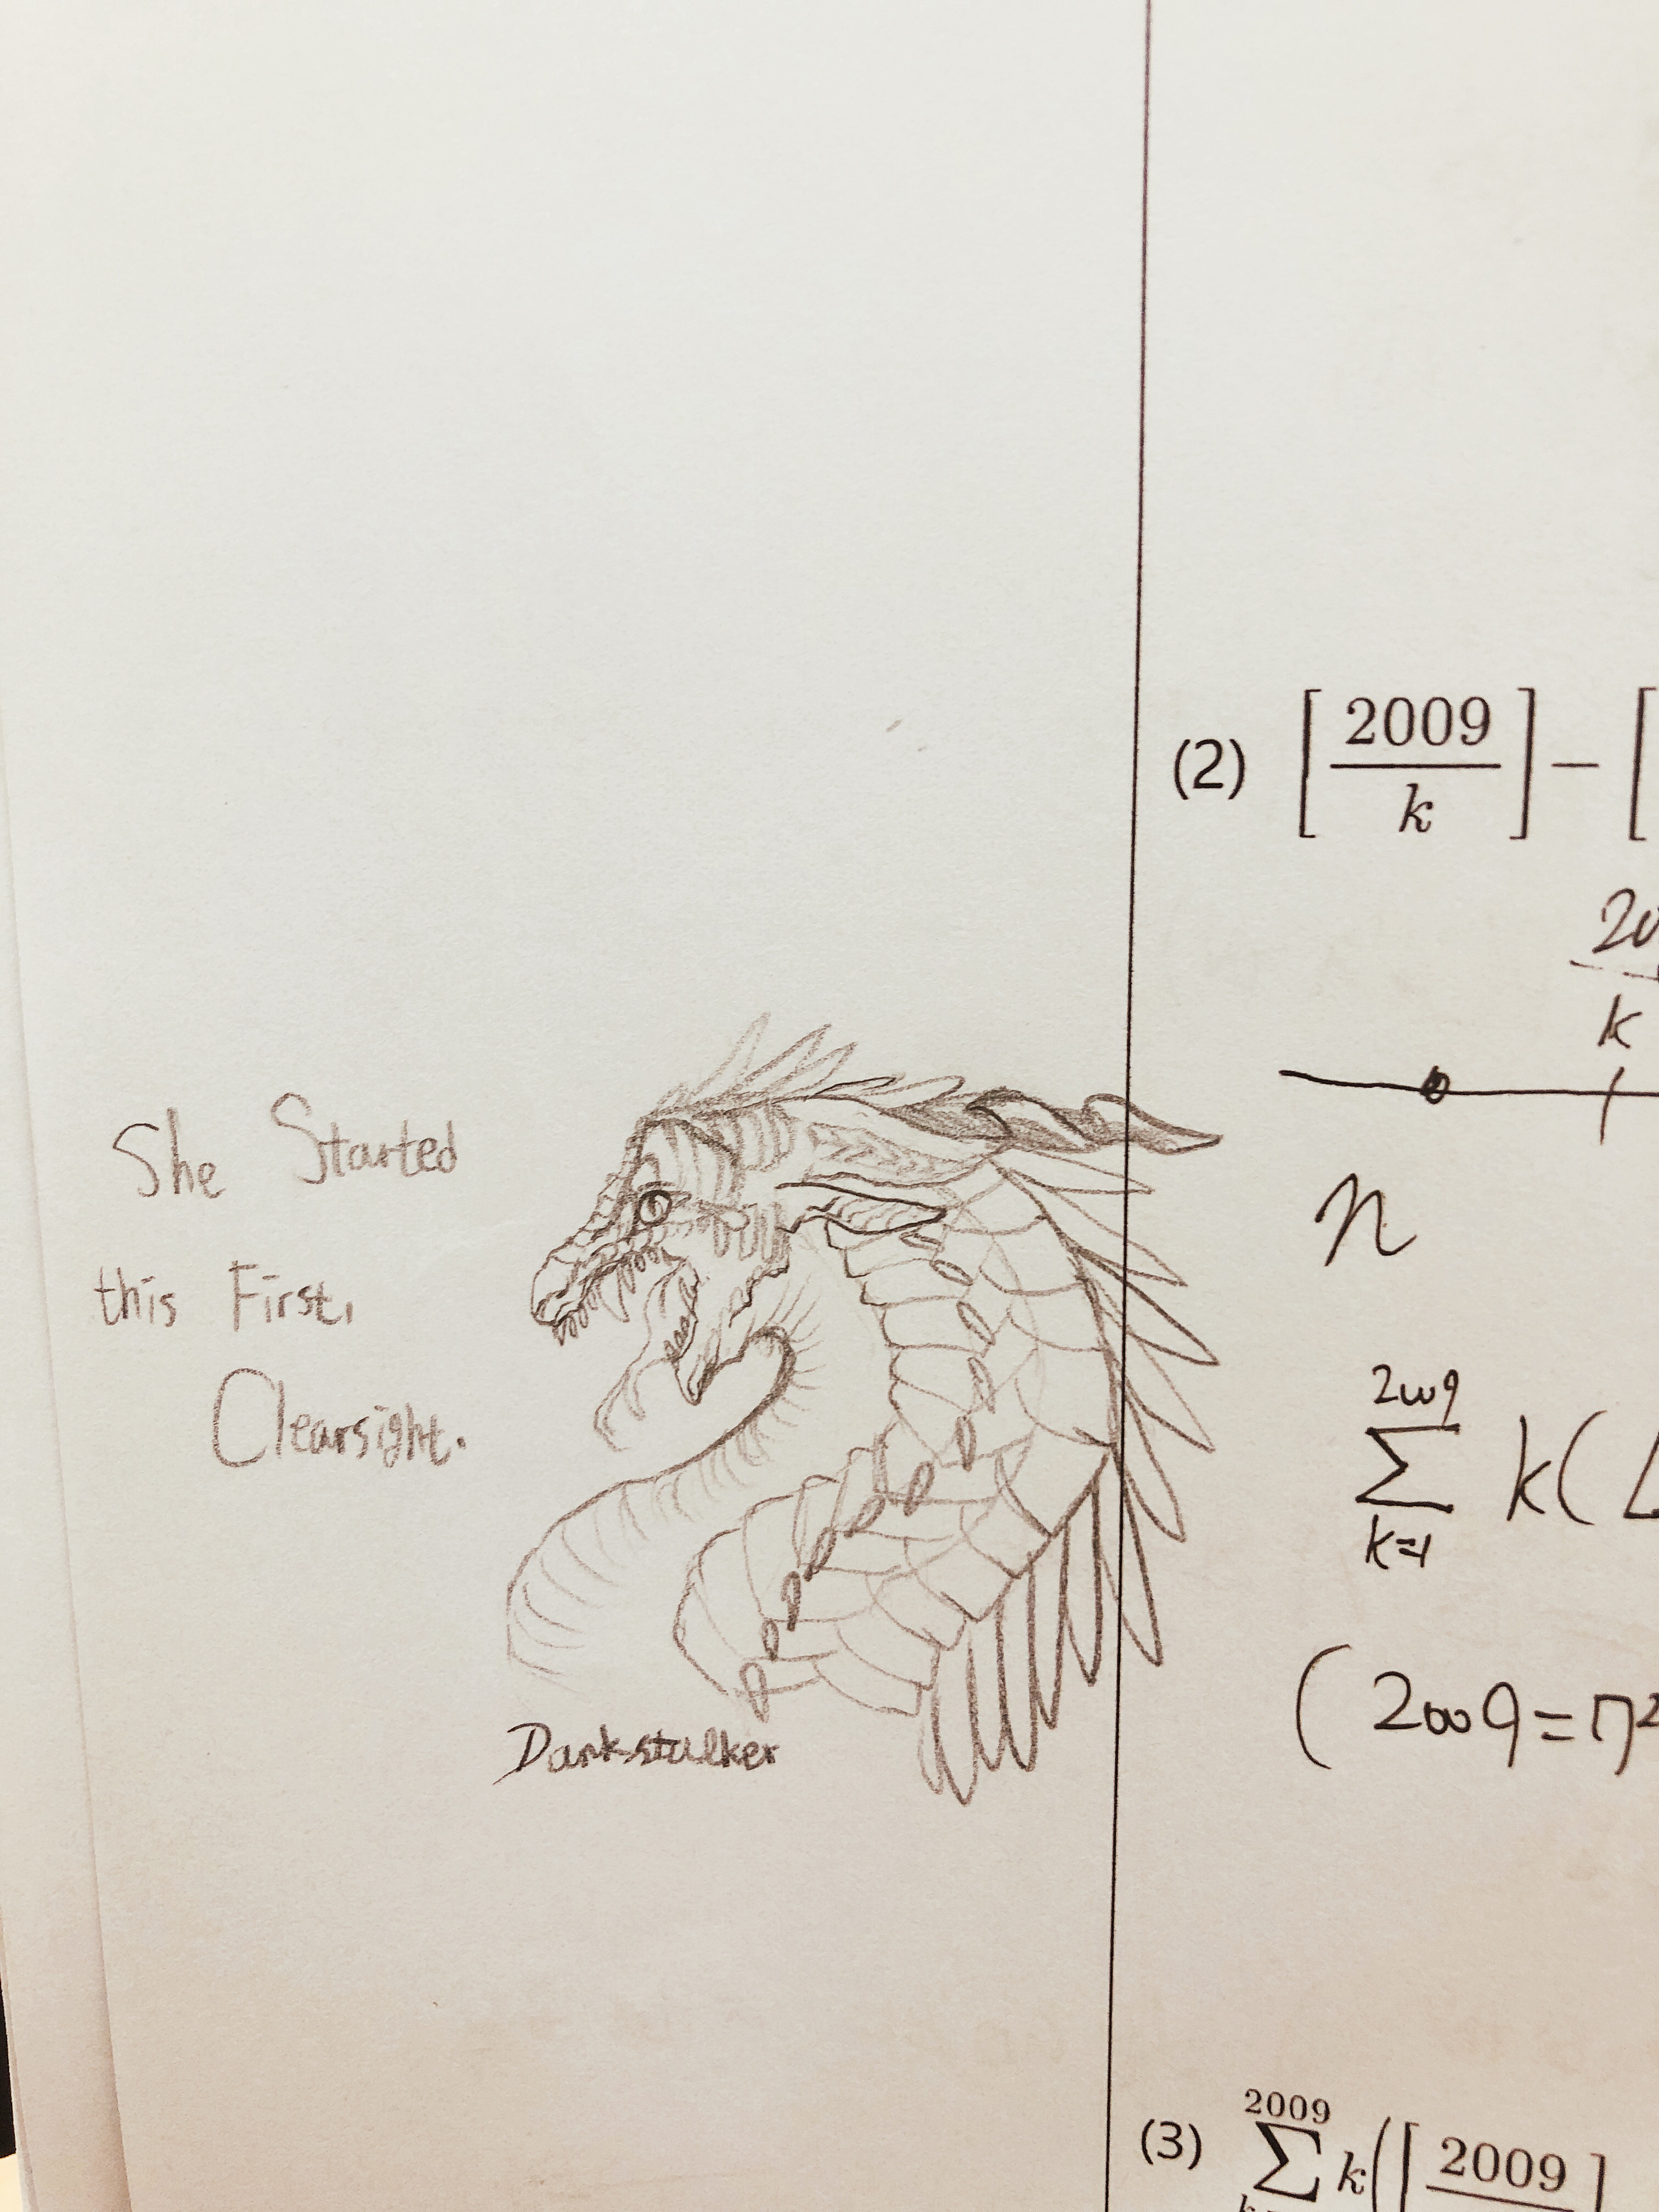 She Started
this First,
Clearsight.
Darkstalker
(2) [2009/k] − [
20
k
n
2009
Σ k(
k=1
(2009=7²
2009
(3) Σ k([2009